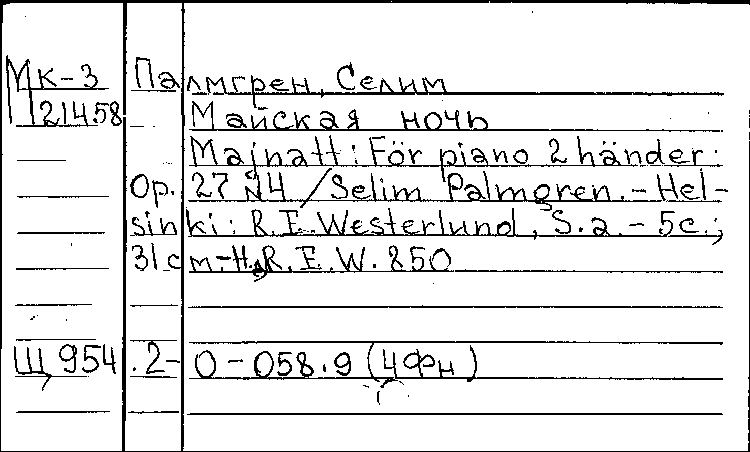 Мк-3 Палмгрен, Селим
21458 Майская ночь
Majnatt: För piano 2 händer:
Op. 27 N4 / Selim Palmgren. - Hel-
sinki: R.E. Westerlund, S.a. - 5c.;
31 см. - Н.д. R.E.W. 850
Щ 954.2-0-058.9 (4Фн)